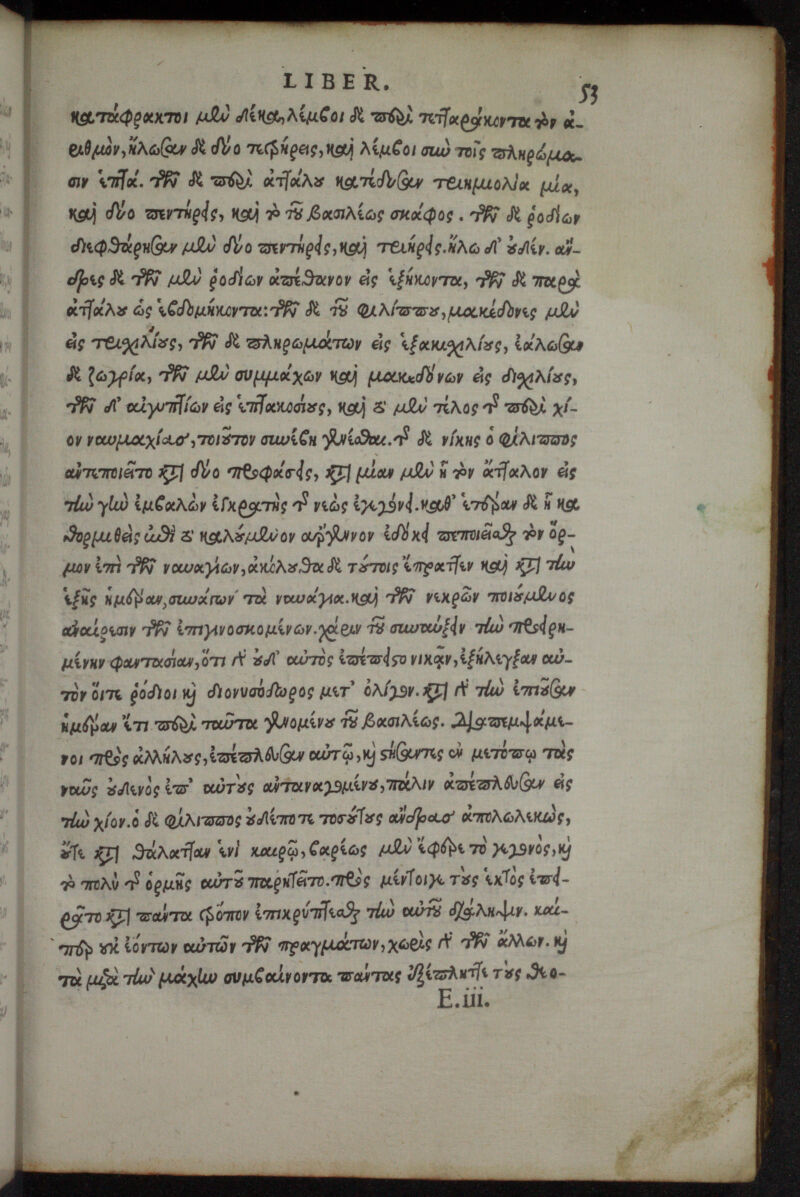 LIBER. 53
κατάφρακτοι μὲν δέκα, λέμβοι δὲ περὶ τετταράκοντα τὸν ἀ-
ριθμὸν, ἥλωσαν δὲ δύο τετρήρεις, καὶ λέμβοι σὺν τοῖς πληρώμα-
σιν ἑπτά. τῶν δὲ περὶ ἀττάλου κατέδυσαν τριημιολία μία,
καὶ δύο πεντήρεις, καὶ τὸ τοῦ βασιλέως σκάφος. τῶν δὲ ῥοδίων
διεφθάρησαν μὲν δύο πεντήρεις, καὶ τριήρεις. ἥλω δ' οὐδέν. ἄν-
δρες δὲ τῶν μὲν ῥοδίων ἀπέθανον εἰς ἑξήκοντα, τῶν δὲ παρὰ
ἀττάλου ὡς ἑβδομήκοντα: τῶν δὲ τοῦ φιλίππου, μακεδόνες μὲν
εἰς τρισχιλίους, τῶν δὲ πληρωμάτων εἰς ἑξακισχιλίους, ἑάλωσαν
δὲ ζωγρία, τῶν μὲν συμμάχων καὶ μακεδόνων εἰς δισχιλίους,
τῶν δ' αἰγυπτίων εἰς ἑπτακοσίους, καὶ τὸ μὲν τέλος τῆς περὶ χί-
ον ναυμαχίας, τοιοῦτον συνέβη γενέσθαι. τῆς δὲ νίκης ὁ φίλιππος
ἀντεποιεῖτο κατὰ δύο προφάσεις, κατὰ μίαν μὲν ᾗ τὸν ἄτταλον εἰς
τὴν γῆν ἐμβαλὼν ἐγκρατὴς τῆς νεὼς ἐγεγόνει. καθ' ἑτέραν δὲ ᾗ κα
θορμισθεὶς ὧδε τὸ καλούμενον ἀργενον ἐδόκει πεποιεῖσθαι τὸν ὅρ-
μον ἐπὶ τῶν ναυαγίων, ἀκόλουθα δὲ τούτοις ἔπραττεν καὶ κατὰ τὴν
ἑξῆς ἡμέραν, συνάγων τὰ ναυάγια. καὶ τῶν νεκρῶν ποιούμενος
ἀναίρεσιν τῶν ἐπιγινοσκομένων. χάριν τοῦ συναύξειν τὴν προειρη-
μένην φαντασίαν, ὅτι γὰρ οὐδ' αὐτὸς ἐπέπειστο νικᾶν, ἐξήλεγξαν αὐ-
τὸν οἵτε ῥόδιοι καὶ διονυσόδωρος μετ' ὀλίγον. κατὰ γὰρ τὴν ἐπιοῦσαν
ἡμέραν ἔτι περὶ ταῦτα γινομένου τοῦ βασιλέως. διαπεμψάμε-
νοι πρὸς ἀλλήλους, ἐπέπλευσαν αὐτῷ, καὶ στήσαντες ἐν μετόπῳ τὰς
ναῦς οὐδενὸς ἐπ' αὐτοὺς ἀνταναγομένου, πάλιν ἀπέπλευσαν εἰς
τὴν χίον. ὁ δὲ φίλιππος οὐδέποτε τοσούτους ἄνδρας ἀπολωλεκὼς,
οὔτε κατὰ θάλατταν ἑνὶ καιρῷ, βαρέως μὲν ἔφερε τὸ γεγονὸς, καὶ
τὸ πολὺ τῆς ὁρμῆς αὐτοῦ παρῃρεῖτο. πρὸς μέντοιγε τοὺς ἐκτὸς ἐπει-
ρᾶτο κατὰ πάντα τρόπον ἐπικρύπτεσθαι τὴν αὐτοῦ διάληψιν. καί-
περ οὐκ ἐόντων αὐτῶν τῶν πραγμάτων, χωρὶς γὰρ τῶν ἄλλων. καὶ
τὰ μετὰ τὴν μάχην συμβαίνοντα πάντας ἐξέπληττε τοὺς θεο-
E.iii.